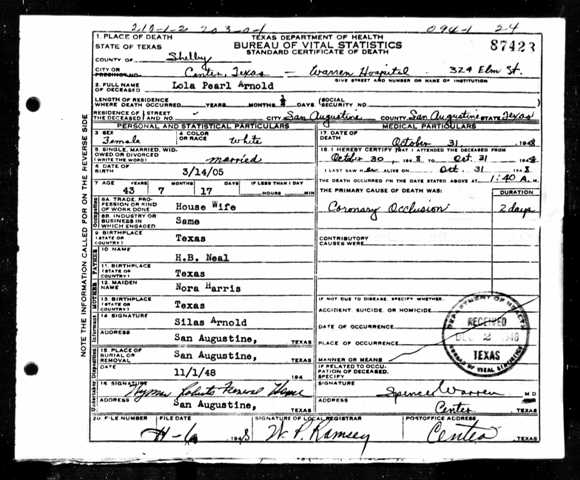 210-1-2 203-01 094-1 24
1 PLACE OF DEATH TEXAS DEPARTMENT OF HEALTH
STATE OF TEXAS BUREAU OF VITAL STATISTICS 87423
STANDARD CERTIFICATE OF DEATH
COUNTY OF Shelby
CITY OR PRECINCT NO. Center, Texas - Warren Hospital 324 Elm St.
GIVE STREET AND NUMBER OR NAME OF INSTITUTION
2. FULL NAME OF DECEASED Lola Pearl Arnold
LENGTH OF RESIDENCE WHERE DEATH OCCURRED YEARS MONTHS DAYS SOCIAL SECURITY NO.
RESIDENCE OF THE DECEASED STREET NO. CITY San Augustine COUNTY San Augustine STATE Texas
PERSONAL AND STATISTICAL PARTICULARS MEDICAL PARTICULARS
3 SEX Female 4 COLOR OR RACE White 17 DATE OF DEATH October 31 1948
5 SINGLE, MARRIED, WIDOWED OR DIVORCED (WRITE THE WORD) married
18 I HEREBY CERTIFY THAT I ATTENDED THE DECEASED FROM
October 30 1948 TO Oct. 31 1948
6 DATE OF BIRTH 3/14/05 I LAST SAW ALIVE ON Oct. 31 1948
THE DEATH OCCURRED ON THE DATE STATED ABOVE AT 1:40 A.M.
7 AGE YEARS 43 MONTHS 7 DAYS 17 IF LESS THAN 1 DAY HOURS MIN THE PRIMARY CAUSE OF DEATH WAS: DURATION
8A TRADE, PROFESSION OR KIND OF WORK DONE House Wife Coronary Occlusion 2 days
8B. INDUSTRY OR BUSINESS IN WHICH ENGAGED Same
9 BIRTHPLACE (STATE OR COUNTRY) Texas CONTRIBUTORY CAUSES WERE:
10 NAME H.B. Neal
11. BIRTHPLACE (STATE OR COUNTRY) Texas
12. MAIDEN NAME Nora Harris
13. BIRTHPLACE (STATE OR COUNTRY) Texas
IF NOT DUE TO DISEASE, SPECIFY WHETHER:
ACCIDENT, SUICIDE, OR HOMICIDE
14 SIGNATURE Silas Arnold DATE OF OCCURRENCE
ADDRESS San Augustine, TEXAS PLACE OF OCCURRENCE
15 PLACE OF BURIAL OR REMOVAL San Augustine, TEXAS MANNER OR MEANS
DATE 11/1/48 194 IF RELATED TO OCCUPATION OF DECEASED, SPECIFY
16 SIGNATURE Wyman Roberts Funeral Home SIGNATURE Spencer Warren M D
ADDRESS San Augustine, TEXAS ADDRESS Center TEXAS
20 FILE NUMBER FILE DATE 1948 SIGNATURE OF LOCAL REGISTRAR W. P. Ramsey POSTOFFICE ADDRESS Center TEXAS
DEPARTMENT OF HEALTH
RECEIVED
DEC 2 1948
TEXAS
BUREAU OF VITAL STATISTICS
NOTE THE INFORMATION CALLED FOR ON THE REVERSE SIDE
Occupation
FATHER
MOTHER
Informant